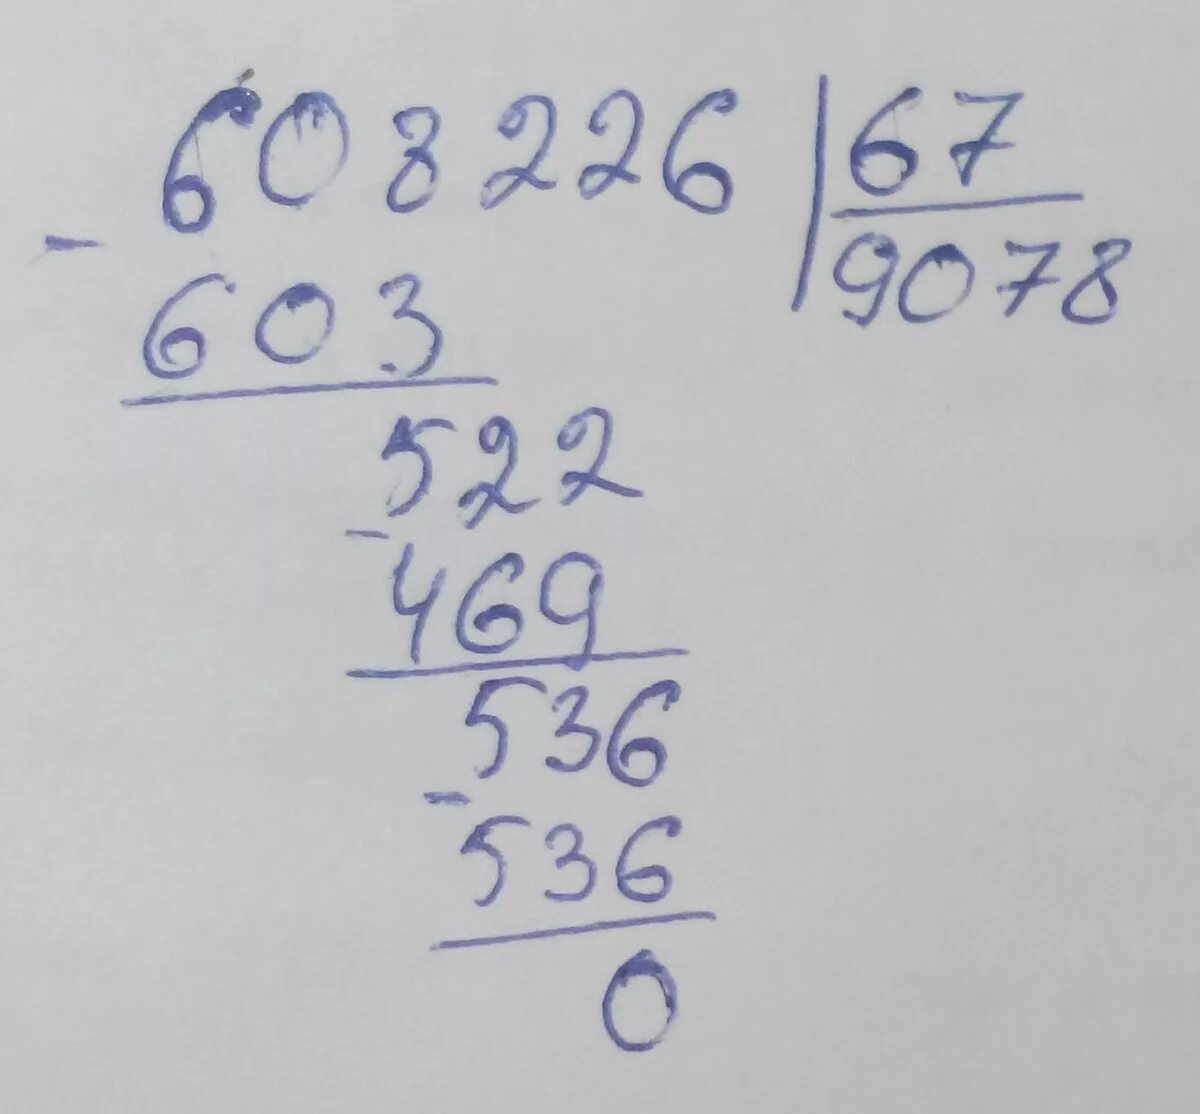 608226 67
- 9078
603
522
-
469
536
-
536
0